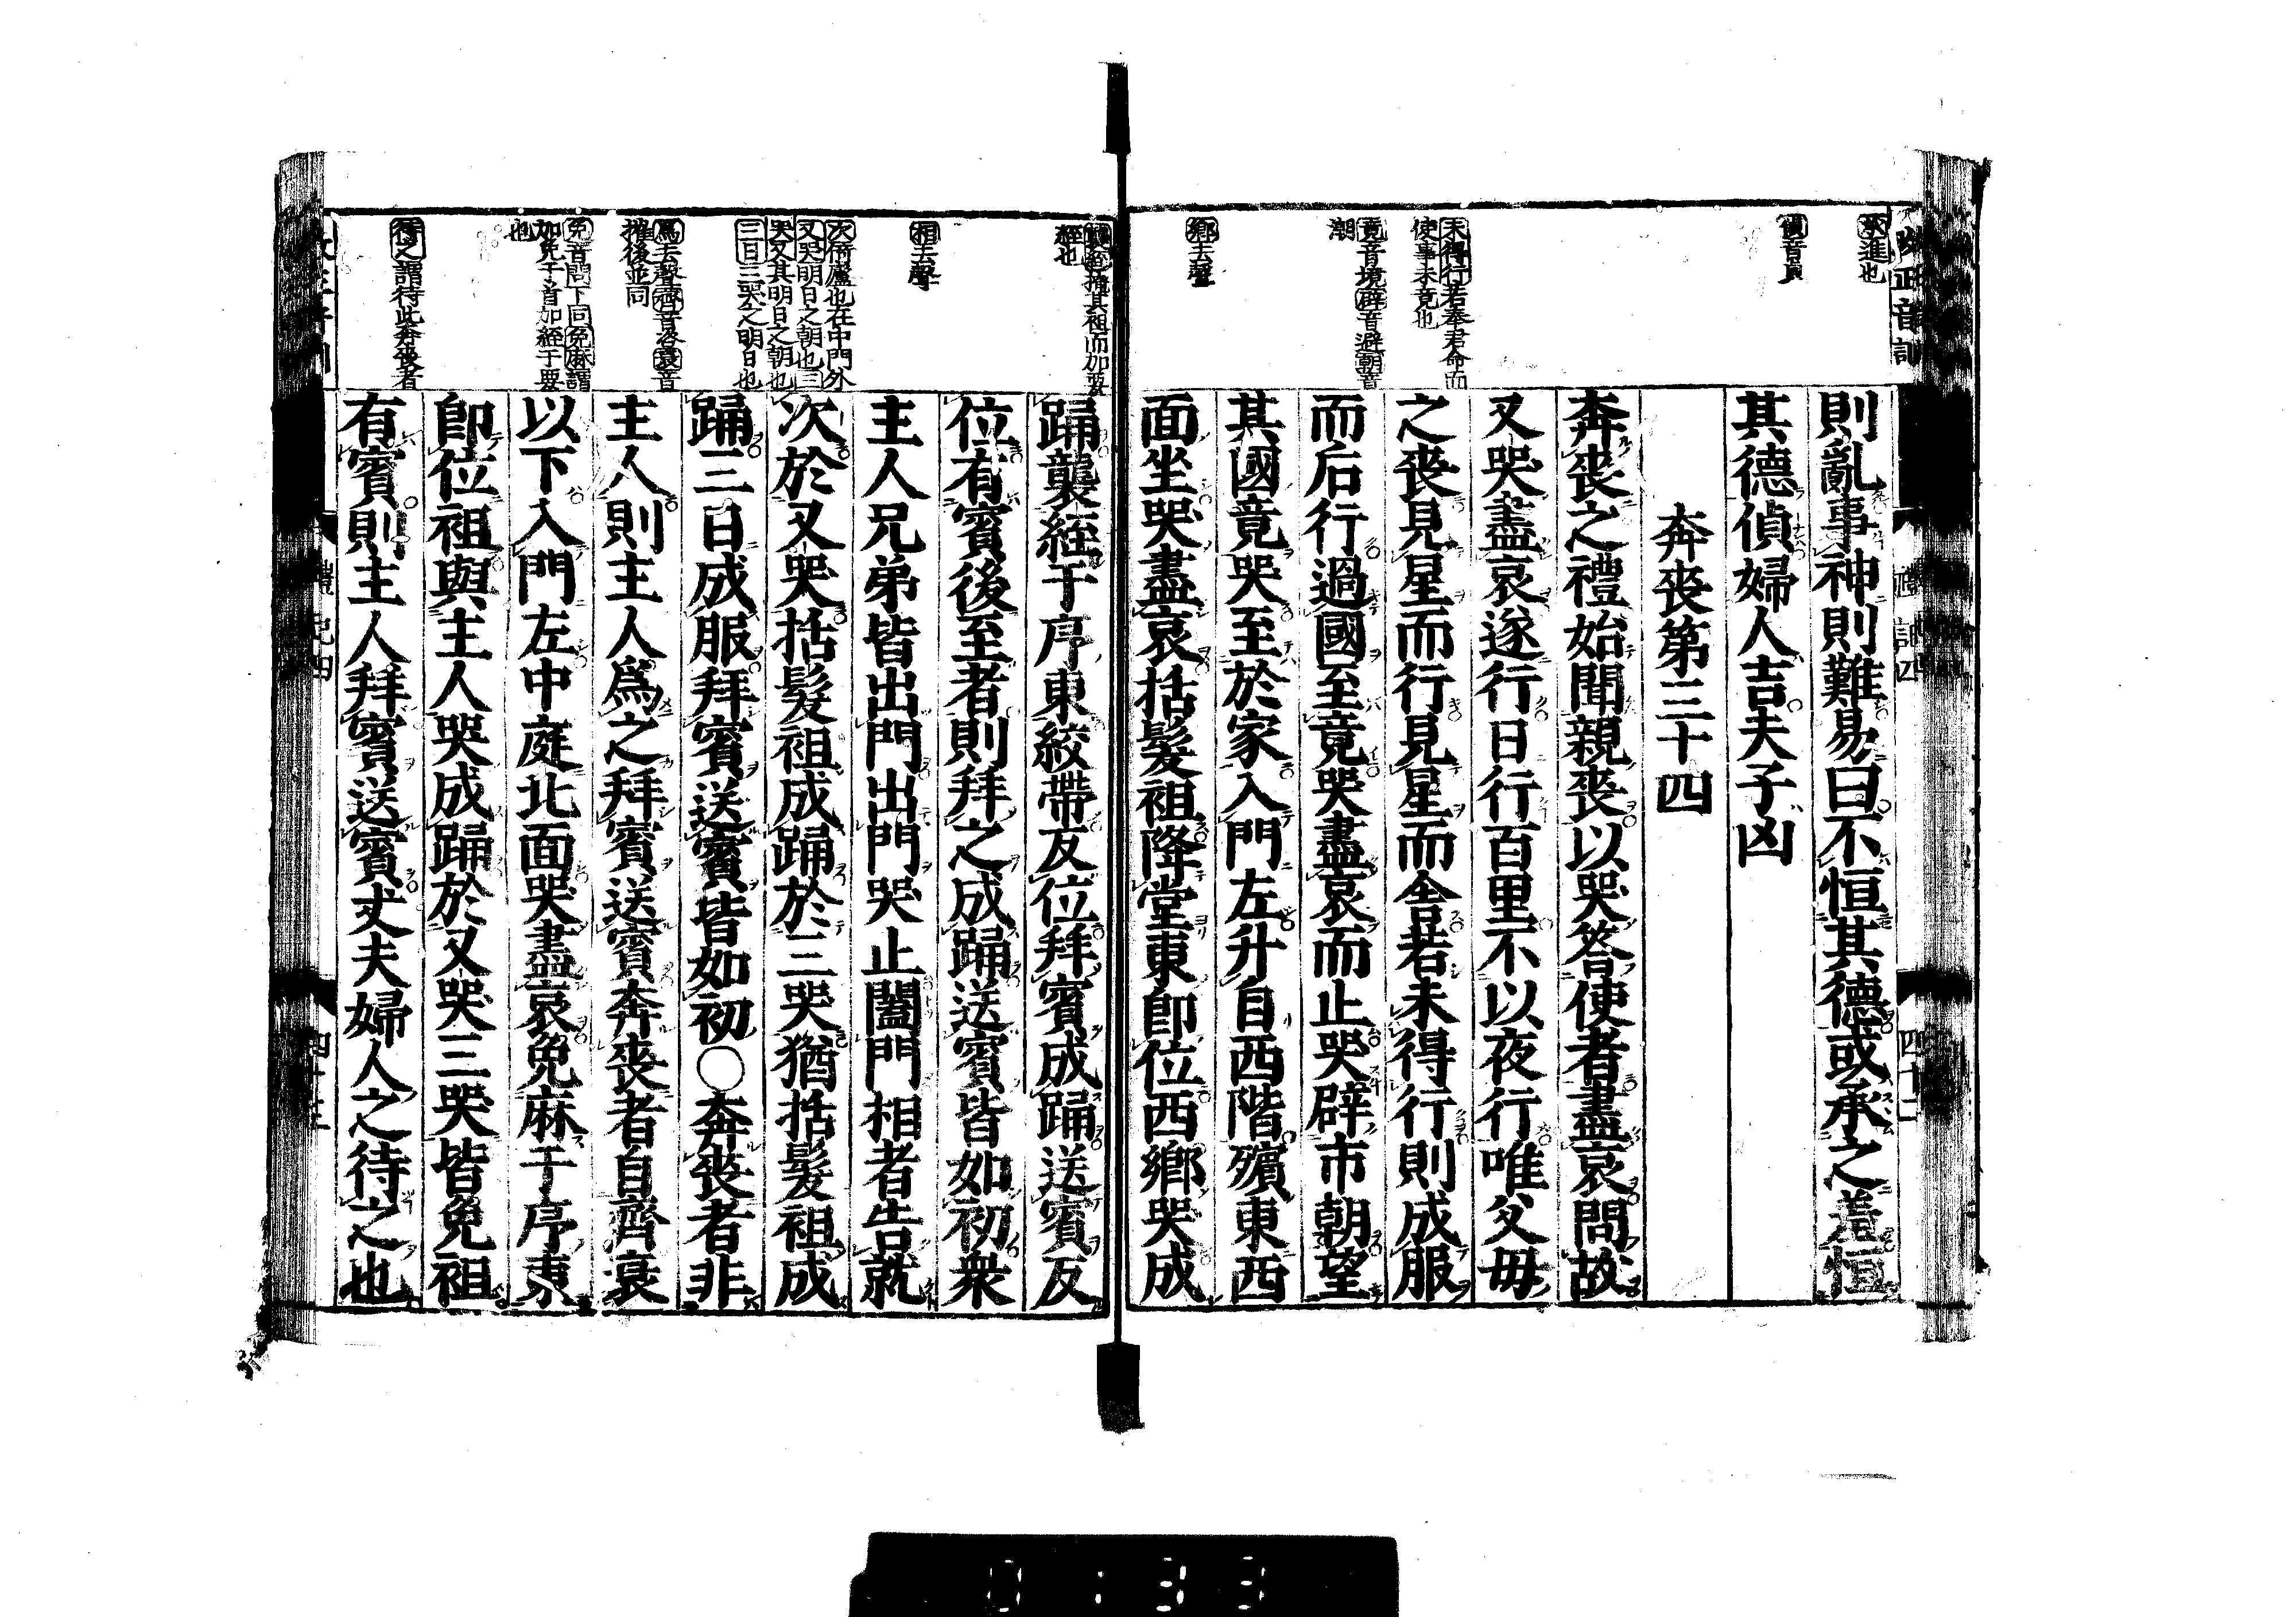 承進也
偵音貞
未得行若奉君命而
使事未竟也
竟音境辟音避朝音
潮
鄉去聲
則亂事神則難易曰不恒其德或承之羞恒
其德偵婦人吉夫子凶
奔喪第三十四
奔喪之禮始聞親喪以哭答使者盡哀問故
又哭盡哀遂行日行百里不以夜行唯父母
之喪見星而行見星而舍若未得行則成服
而后行過國至竟哭盡哀而止哭辟市朝望
其國竟哭至於家入門左升自西階殯東西
面坐哭盡哀括髮袒降堂東即位西鄉哭成
經也
相去聲
次倚廬也在中門外
又哭明日之朝也三
哭又其明日之朝也
三日三哭之明日也
爲去聲齊音咨衰音
摧後並同
免音問下同免麻謂
加免于首加絰于要
也
待之謂待此奔喪者
踊襲絰于序東絞帶反位拜賓成踊送賓反
位有賓後至者則拜之成踊送賓皆如初衆
主人兄弟皆出門出門哭止闔門相者告就
次於又哭括髮袒成踊於三哭猶括髮袒成
踊三日成服拜賓送賓皆如初○奔喪者非
主人則主人爲之拜賓送賓奔喪者自齊衰
以下入門左中庭北面哭盡哀免麻于序東
即位袒與主人哭成踊於又哭三哭皆免袒
有賓則主人拜賓送賓丈夫婦人之待之也
0133